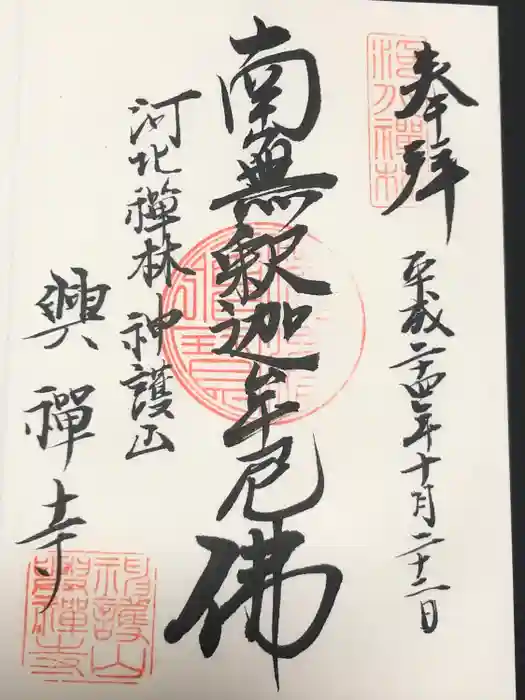 奉拜
平成二十四年十月二十二日
南無釈迦牟尼佛
河北禪林 神護山
興禪寺
河北禪林
神護山
興禪寺